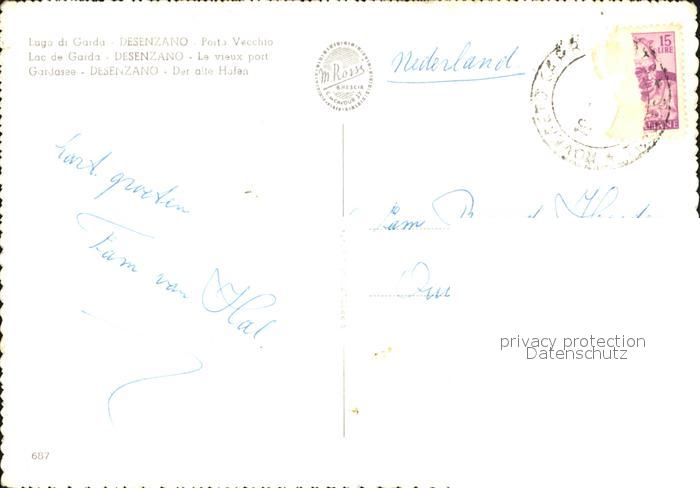 Lago di Garda - DESENZANO - Porto Vecchio
Lac de Garda - DESENZANO - Le vieux port
Gardasee - DESENZANO - Der alte Hafen
BRESCIA
Nederland
15
LIRE
hart. groeten
Fam van Hal.
Fam
privacy protection
Datenschutz
687